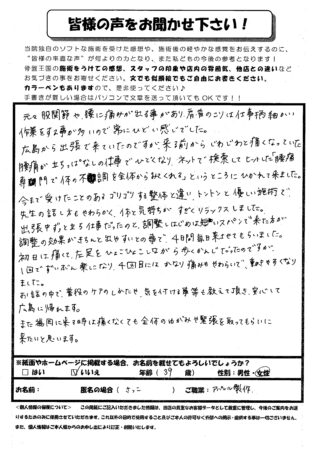 皆様の声をお聞かせ下さい！
当院独自のソフトな施術を受けた感想や、施術後の軽やかな感覚をお伝えするのに、
"皆様の率直な声"が何よりの力となり、また私どもの今後の参考となります！
骨盤王国の施術をうけての感想、スタッフの印象や店内の雰囲気、他店との違いなど
お気づきの事をお書きください。文でも似顔絵でもご自由にお書きください。
カラーペンもありますので、是非使ってください。
手書きが難しい場合はパソコンで文章を送って頂いてもOKです！！
元々股関節や、腰に痛みが出る事があり、肩首のこりは仕事柄細かい
作業をする事が多いので常にひどい感じでした。
広島から出張で来ていたのですが、来る前からじわじわと痛くなっていた
腰痛が立ちっぱなしの仕事でひどくなり、ネットで検索してヒットした腰痛
専門で体の不調を全体からみてくれる」というところにひかれて来ました。
今まで受けたことのあるゴリゴリする整体と違い、トントンと優しい施術で、
先生の話し方もやわらかく、体と気持ちがすぐとリラックスしました。
出張中ずっと立ち仕事だったのと、調整しはじめは短いスパンで来た方が
調整の効果がきちんと出やすいとの事で、4日間毎日来させてもらいました。
初日は痛くて、左足をひょこひょこしながら歩くかんじだったのですが、
1回でずいぶん楽になり、4回目にはかなり痛みもやわらいで、動きやすくなり
ました。
お話の中で、普段のケアのしかたや、気を付ける事等も教えて頂き、安心して
広島に帰れます。
また福岡に来る時は痛くなくても全体のゆがみや緊張を取ってもらいに
来たいと思います。
※紙面やホームページに掲載する場合、お名前を載せてもよろしいでしょうか？
□はい ☑いいえ 年齢（39 歳） 性別：男性・女性
お名前： 匿名の場合（さっこ） ご職業：アパレル製作
＜個人情報の保護について＞